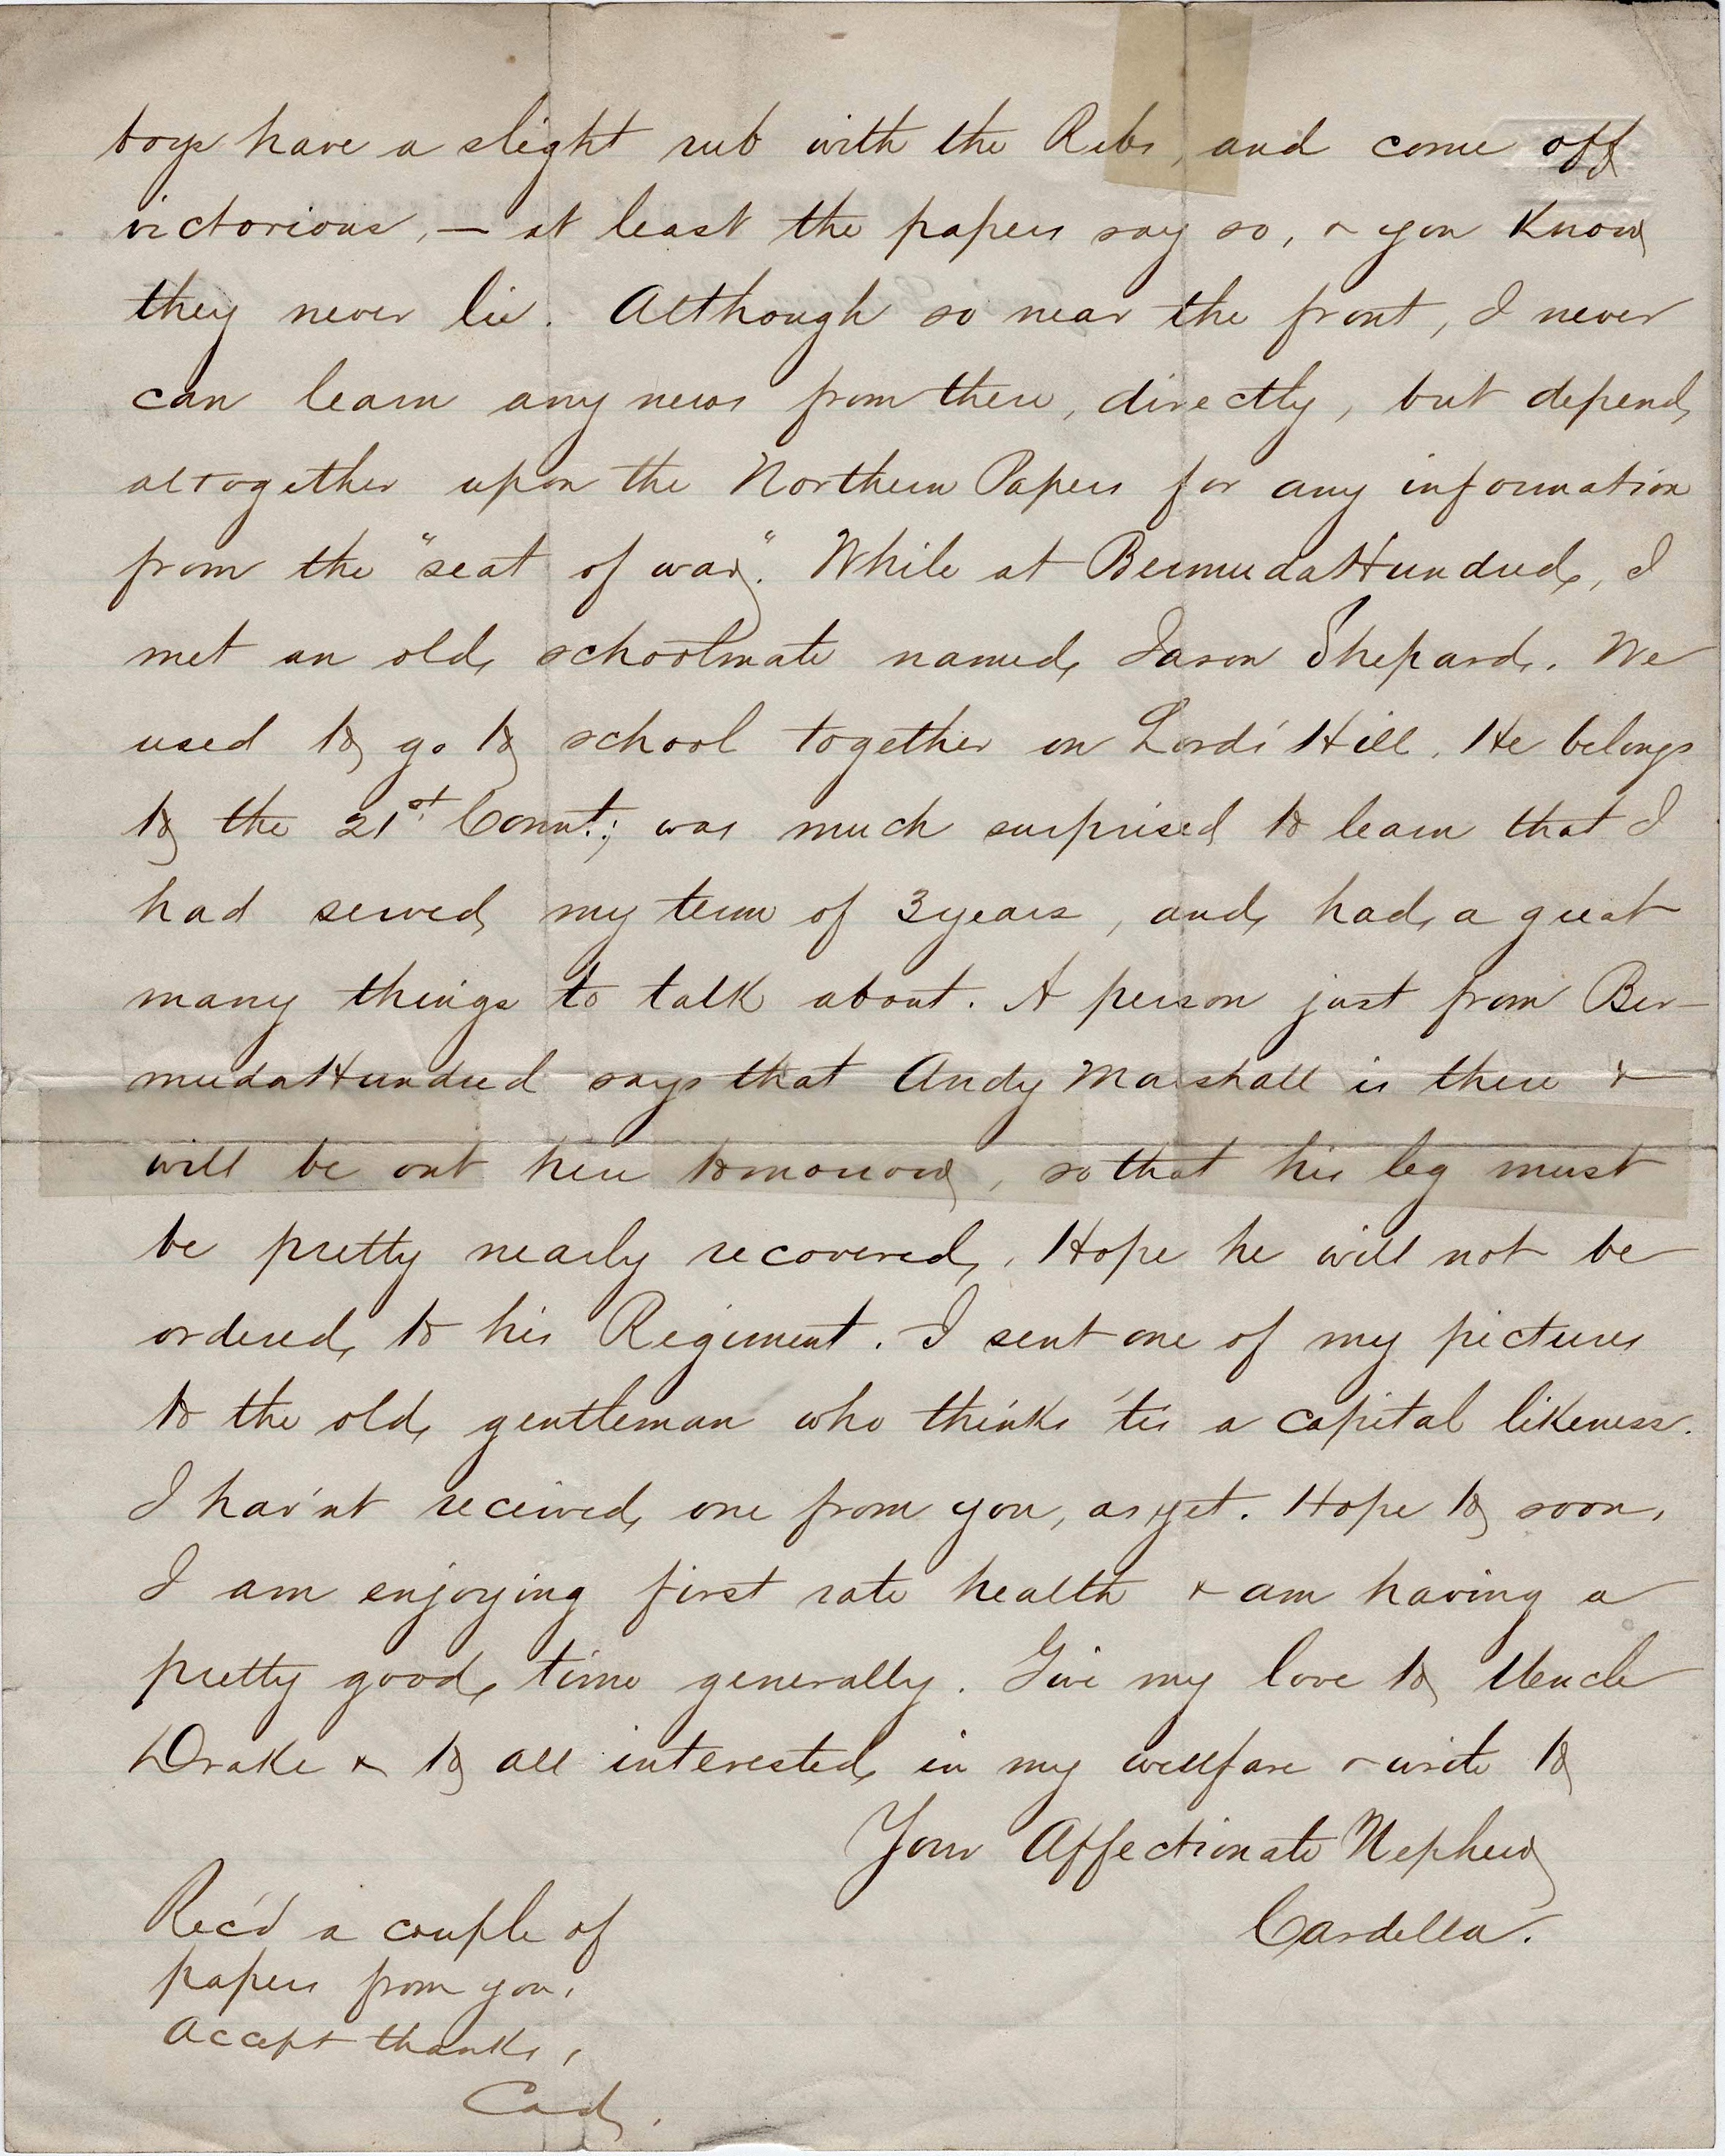 boys have a slight rub with the Rebs, and come off
victorious, — at least the papers say so, & you know
they never lie. Although so near the front, I never
can learn any news from there, directly, but depend
altogether upon the Northern Papers for any information
from the "seat of war." While at Bermuda Hundred, I
met an old schoolmate named Jason Shepard. We
used to go to school together on Lords' Hill. He belongs
to the 21st Connt.; was much surprised to learn that I
had served my term of 3 years, and had a great
many things to talk about. A person just from Ber-
muda Hundred says that Andy Marshall is there &
will be out here tomorrow, so that his leg must
be pretty nearly recovered. Hope he will not be
ordered to his Regiment. I sent one of my pictures
to the old gentleman who thinks 'tis a capital likeness.
I hav'nt received one from you, as yet. Hope to soon.
I am enjoying first rate health & am having a
pretty good time generally. Give my love to Uncle
Drake & to all interested in my wellfare & write to
Your Affectionate Nephew
Cardella.
Rec'd a couple of
papers from you.
Accept thanks.
Cad.